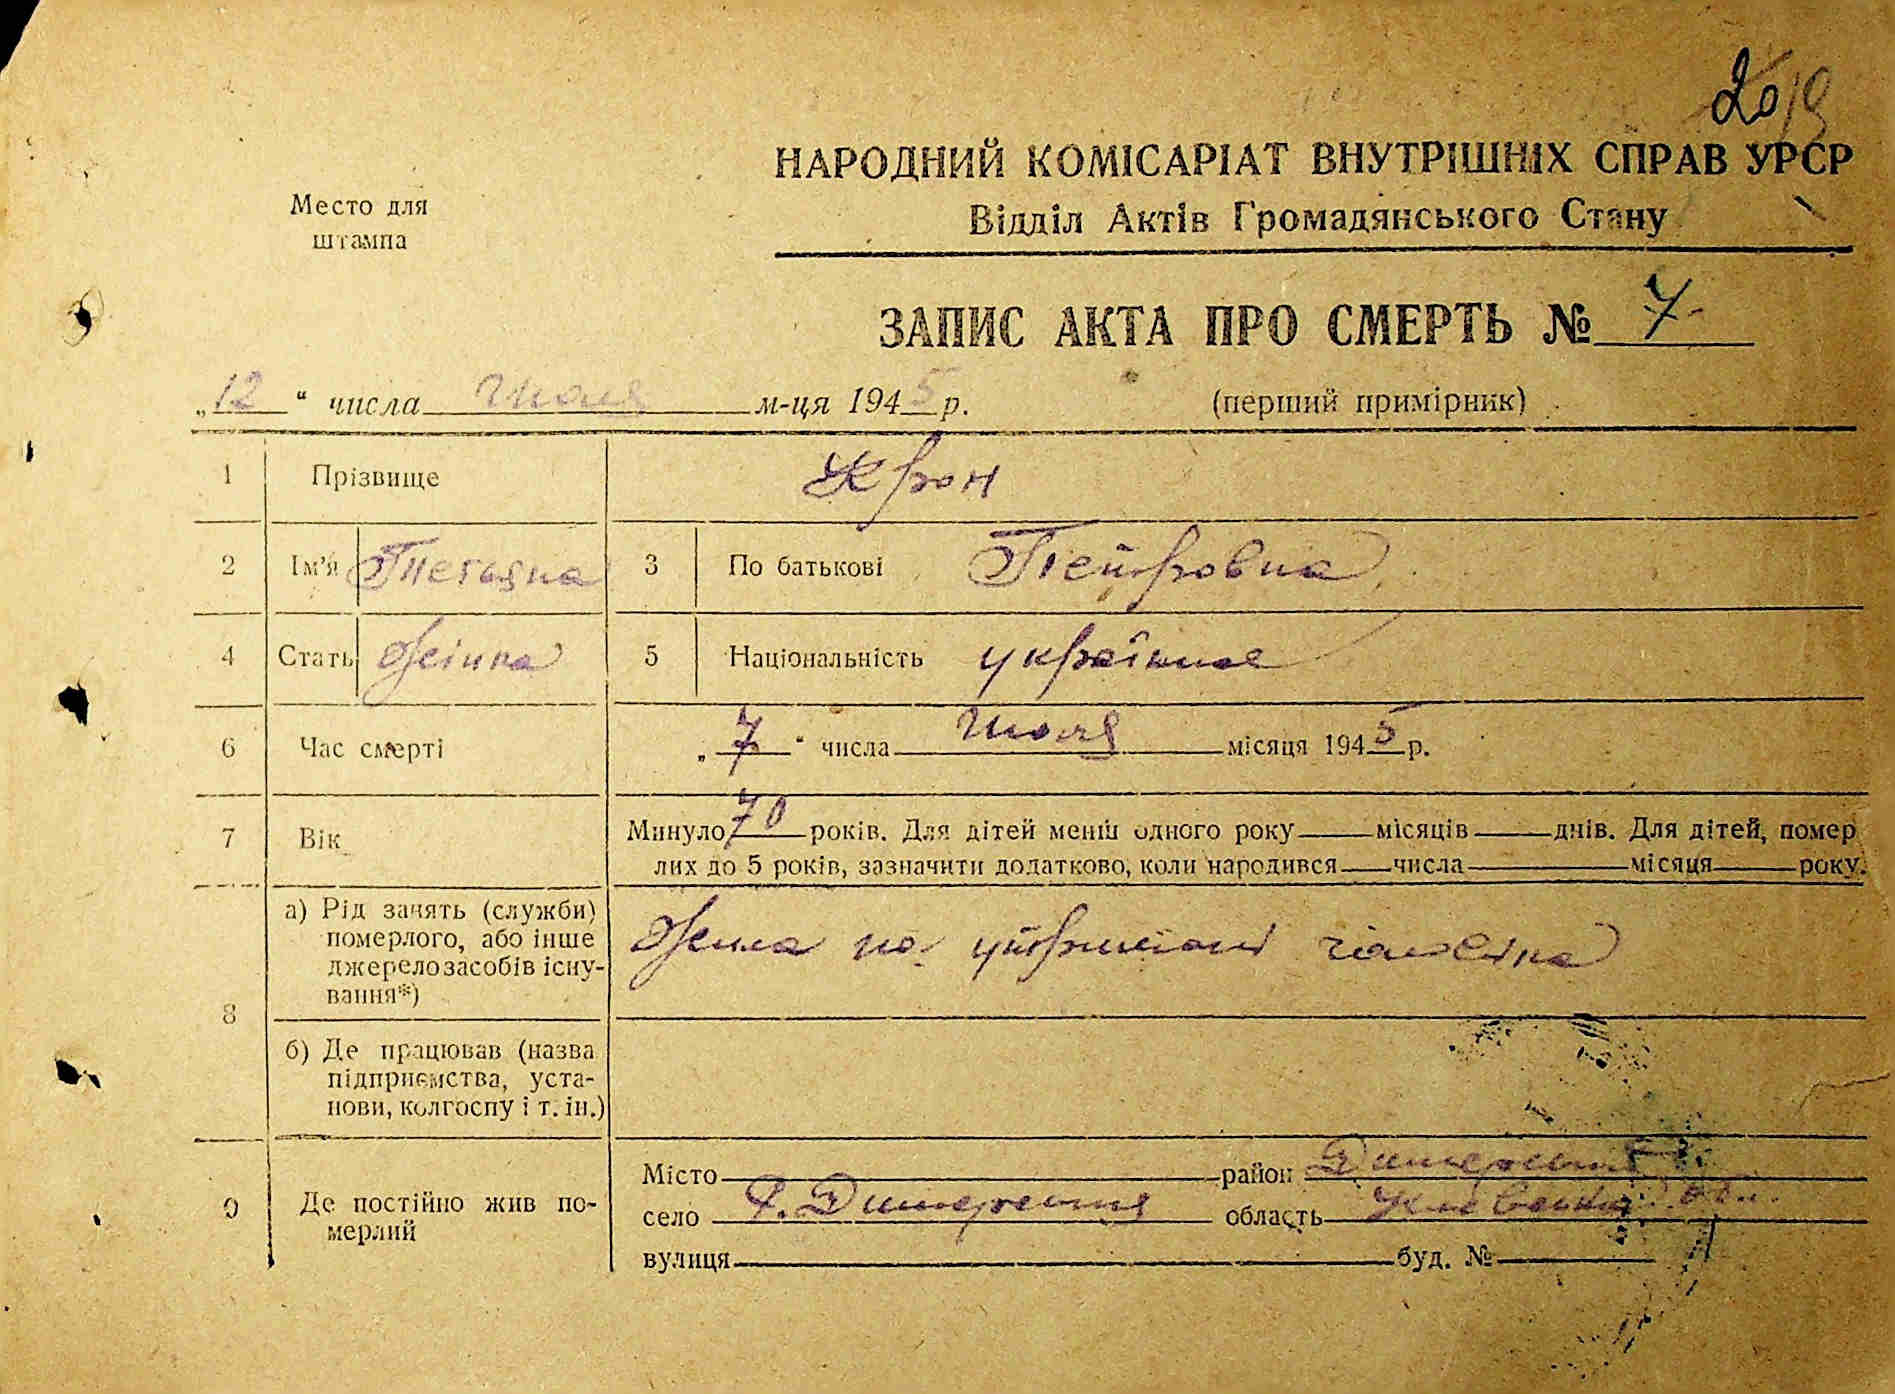 20
НАРОДНИЙ КОМІСАРІАТ ВНУТРІШНІХ СПРАВ УРСР
Место для штампа
Відділ Актів Громадянського Стану
ЗАПИС АКТА ПРО СМЕРТЬ № 7
„12“ числа Июля м-ця 1945 р. (перший примірник)
1 Прізвище Крон
2 Ім’я Тетяна 3 По батькові Петровна
4 Стать Жінка 5 Національність українка
6 Час смерті „7“ числа Июля місяця 1945 р.
7 Вік Минуло 70 років. Для дітей менш одного року місяців днів. Для дітей, помер
лих до 5 років, зазначити додатково, коли народився числа місяця року.
8 а) Рід занять (служби) померлого, або інше джерело засобів існу-вання*) Жила на утриманні
б) Де працював (назва підприємства, уста-нови, колгоспу і т. ін.)
9 Де постійно жив по-мерлий
Місто район
село область Київська обл.
вулиця буд. №